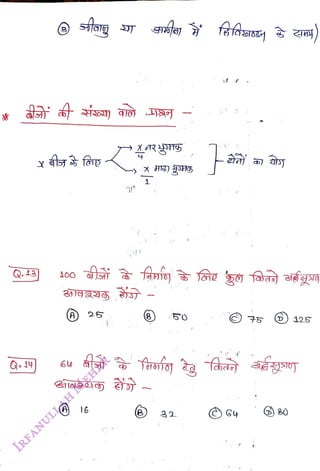 Ⓑ जीवाणु या अमीबा में द्विविखण्डन के समय)
* बीजों की संख्या वाले प्रश्न -
x बीज के लिए
x/4 नर युग्मक
x/1 मादा युग्मक
दोनों का योग
Q.13 100 बीजों के निर्माण के लिए कुल कितने अर्द्धसूत्रण
आवश्यक होंगे -
Ⓐ 25 Ⓑ 50 Ⓒ 75 Ⓓ 125
Q.14 64 बीजों के निर्माण हेतु कितने अर्द्धसूत्रण
आवश्यक होंगे -
Ⓐ 16 Ⓑ 32 Ⓒ 64 Ⓓ 80